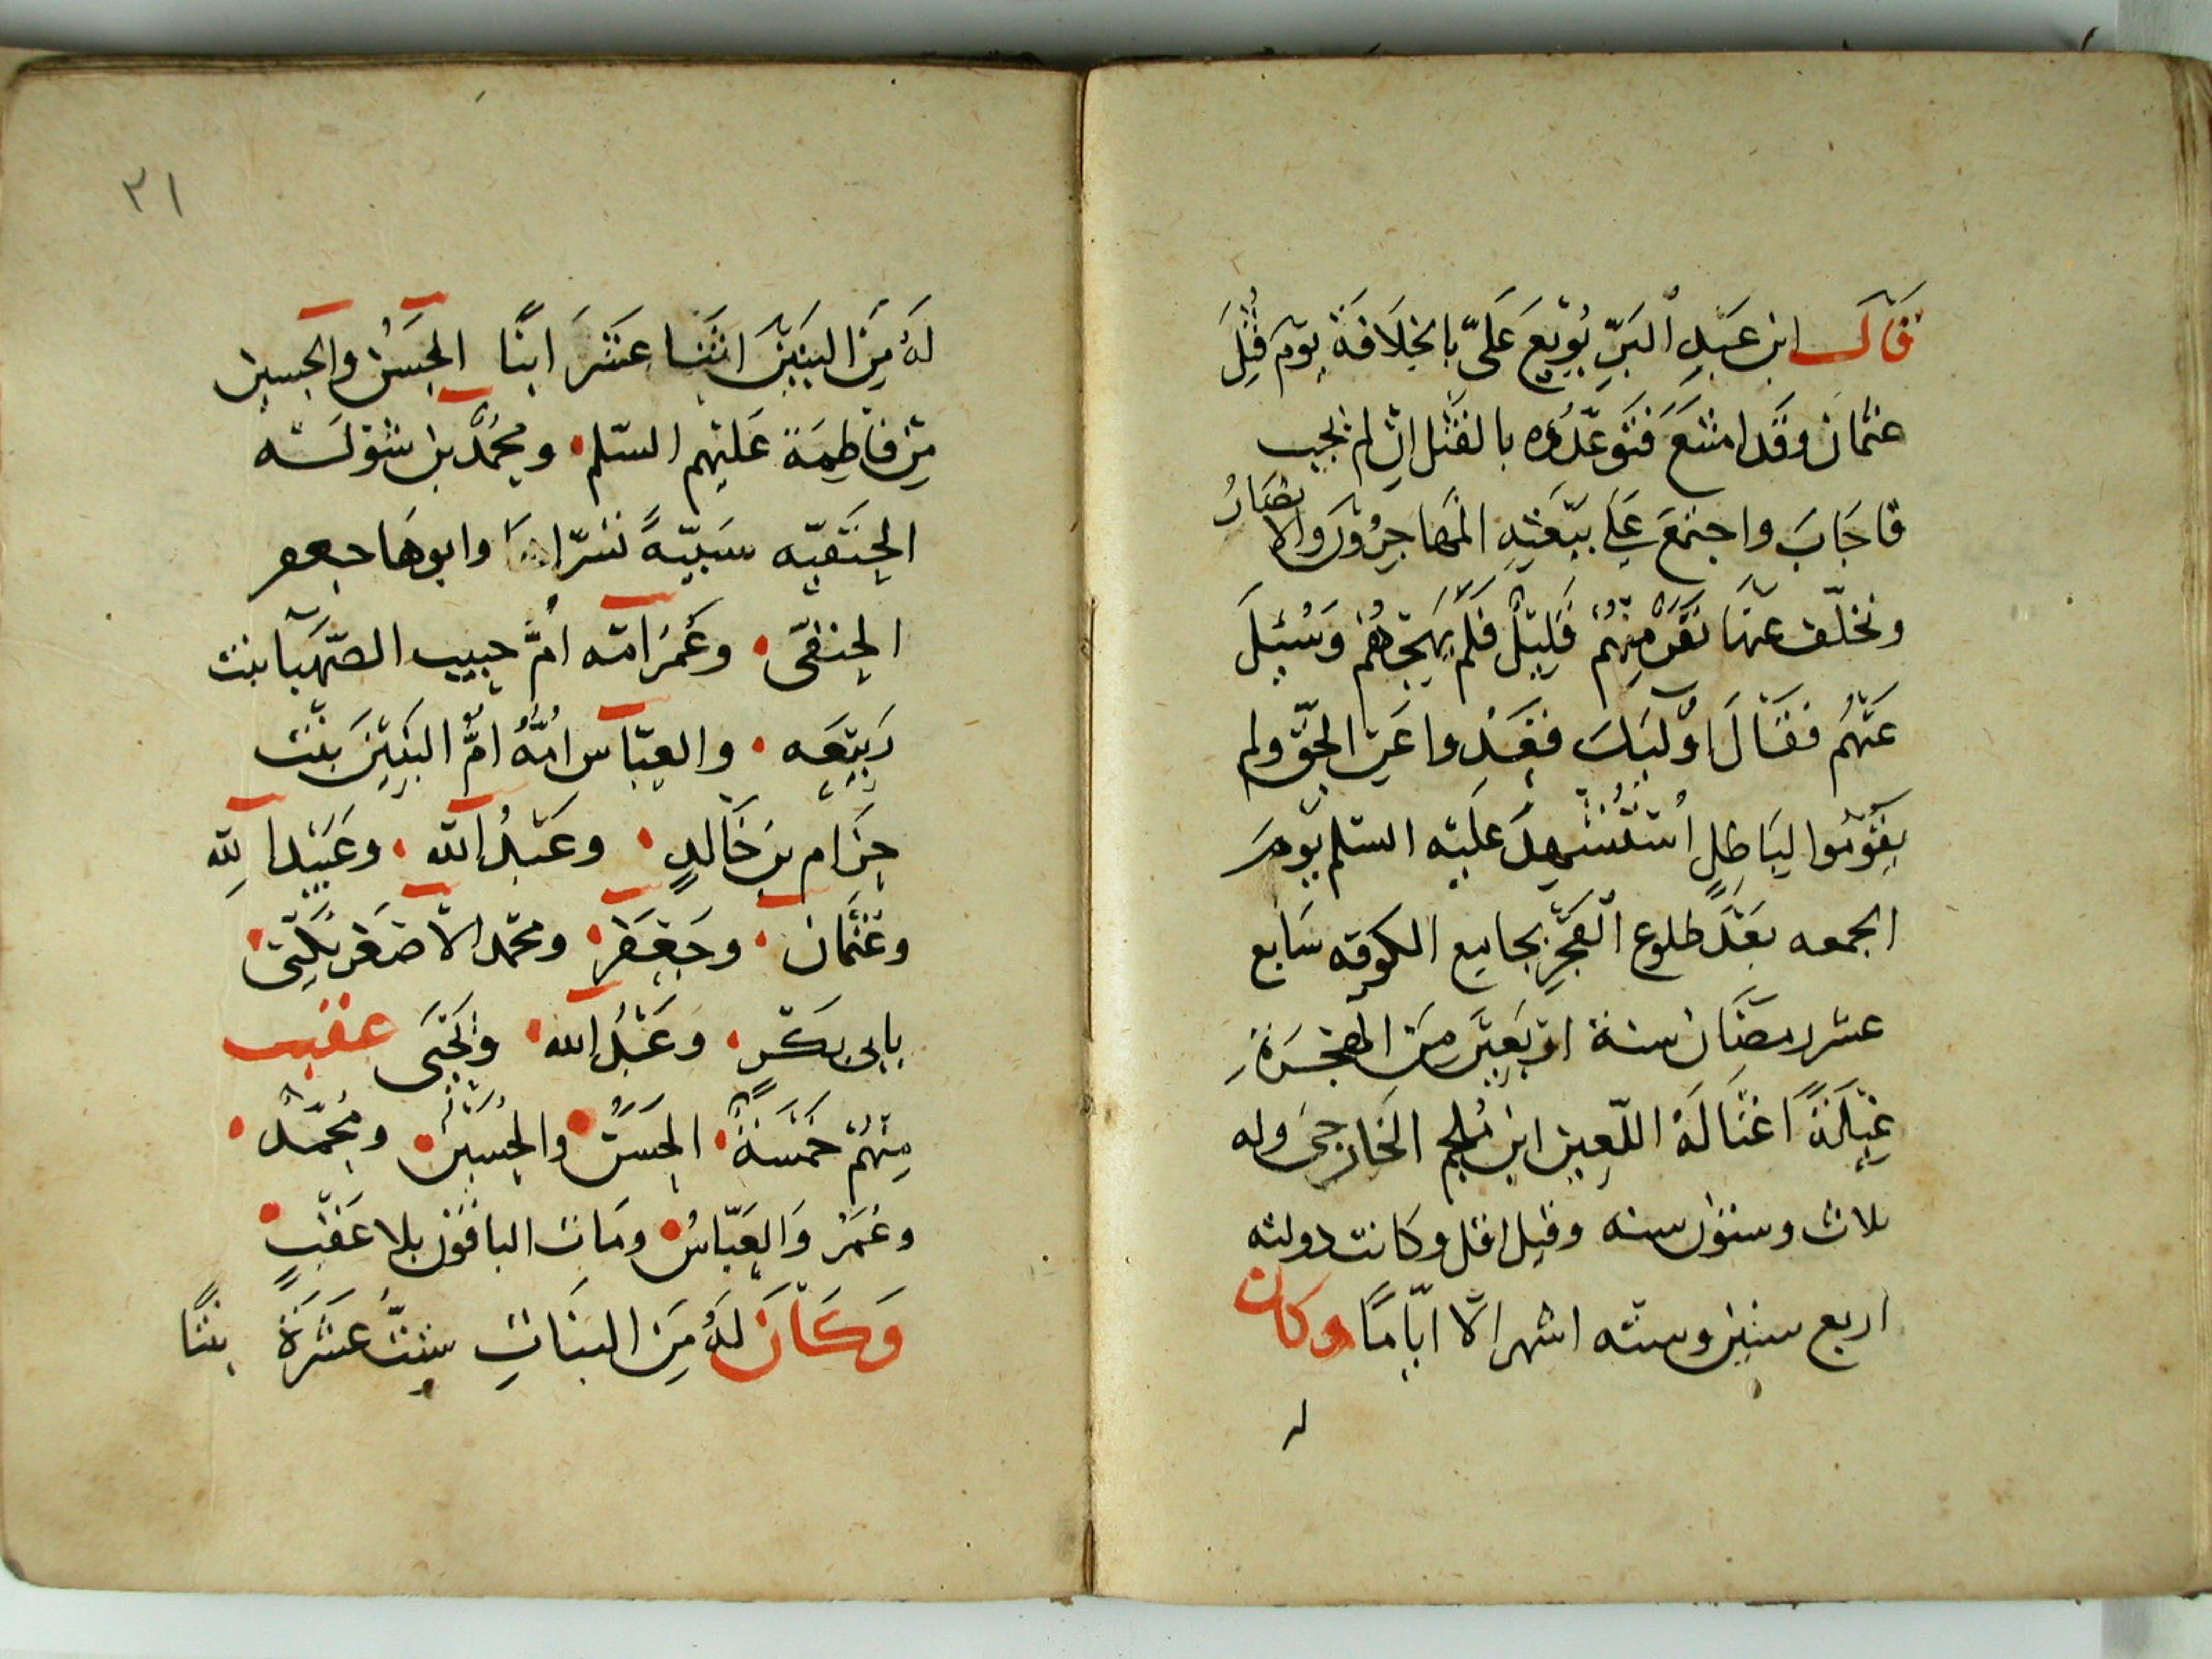 قَالَ ابن عَبْدِ الْبَرِّ بُوْيِعَ عَلَىّ بالخِلَافَة يَوْمَ قُتِلَ
عثمان وقد امتنعَ فَتَوَعّدُوْه بالقَتْل ان لم يجيب
فاجَابَ واجتمَعَ عَلى بَيْعَتِهِ المهَاجِرُوْن والانصَارُ
وتخلّف عنهَا نَفَرٌ مِنهُمْ قَلِيْلٌ فَلَم يَهِجْهُمْ وَسُئِلَ
عَنْهُم فَقَالَ اوْلَئِكَ قَعَدُوا عَنِ الحقّ ولم
يقُوْمُوا لبَاطِلٍ اُسْتُشْهِدَ عَليْه السلم يَوْمَ
الجمعه بَعْدَ طلوع الْفَجْرِ بجامِع الكوفه سَابع
عشر رمضَان سنة ارْبَعِيْنَ مِنَ الهِجْرَةِ
غِيْلَةً اغْتَالَهُ اللّعِين ابن مُلجم الخَارجىَ وله
ثلاث وستون سنه وقيل اقل وكانت دولته
اربع سنين وسته اشهر الّا ايّامًا وكان
لـ
٣١
لَهُ مِنَ البَنِيْنَ اثْنَا عَشَرَ ابنًا الحَسَنُ والحسين
مِن فاطِمَة عَليْهم السّلم ومحمّد بن
الحَنَفيّه سَبيّةً وابوهَا جعفر
الحنفىّ وعُمَرَ امّه امُّ حبيب الصّهبَا بنت
رَبِيْعَه والعبّاس امّهُ امُّ البَنِيْن بِنْت
حِزَام بن خَالِدٍ وعَبْدُ الله وعُبَيْد الله
وعُثْمَان وجَعْفَر ومحمّد الاصْغَر يُكَنّى
بابى بَكْرٍ وعَبْدُ الله وَيَحْيَى عقب
مِنْهُمْ خَمْسَةٌ الحَسَنُ والحُسَيْن ومُحمّدٌ
وعُمَرُ وَالعَبّاسُ ومَات الباقُوْن بلا عَقْبٍ
وَكَانَ لَهُ مِنَ البنَاتِ سِتَّ عَشْرَةَ بنتًا